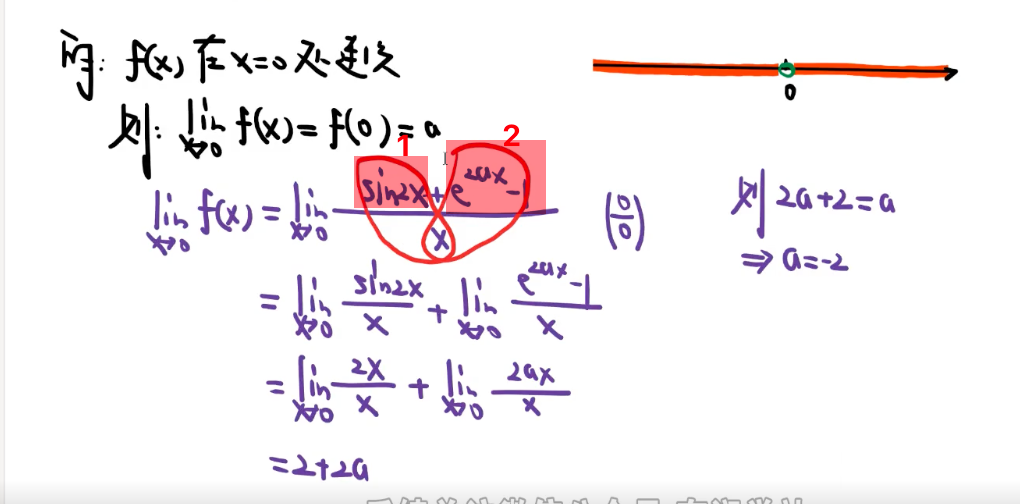 解: f(x) 在 x=0 处连续
0
则: lim x→0 f(x) = f(0) = a
1
2
lim x→0 f(x) = lim x→0 (sin2x + e^{2ax} - 1)/x (0/0)
则 2a+2=a
⇒ a=-2
= lim x→0 sin2x/x + lim x→0 (e^{2ax} - 1)/x
= lim x→0 2x/x + lim x→0 2ax/x
=2+2a